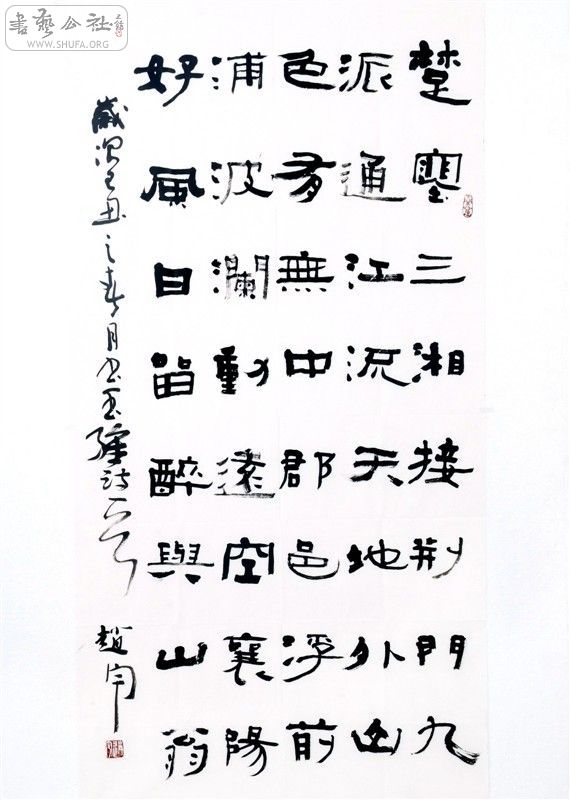 書藝公社
WWW.SHUFA.ORG
楚塞三湘接荆門九
派通江流天地外山
色有無中郡邑浮前
浦波瀾動遠空襄陽
好風日留醉與山翁
歲次己丑之春月书王維詩一首
趙宇